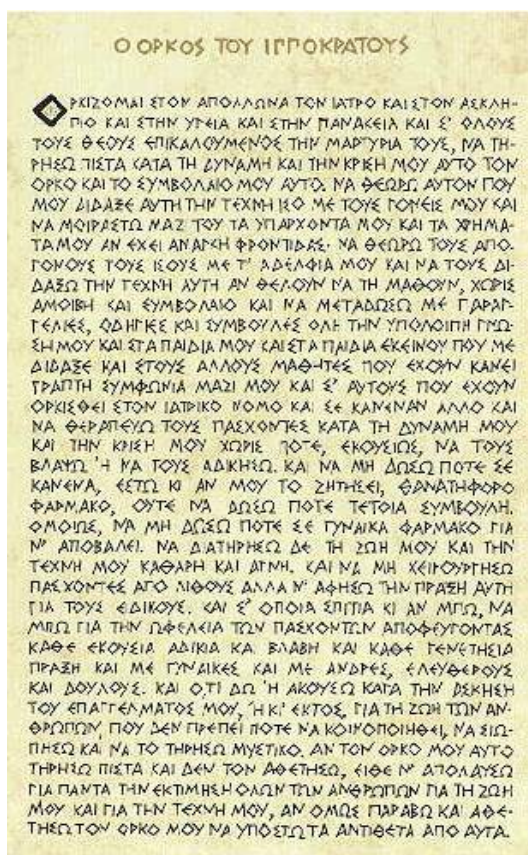 Ο ΟΡΚΟΣ ΤΟΥ ΙΠΠΟΚΡΑΤΟΥΣ
ΟΡΚΙΖΟΜΑΙ ΣΤΟΝ ΑΠΟΛΛΩΝΑ ΤΟΝ ΙΑΤΡΟ ΚΑΙ ΣΤΟΝ ΑΣΚΛΗ-
ΠΙΟ ΚΑΙ ΣΤΗΝ ΥΓΕΙΑ ΚΑΙ ΣΤΗΝ ΠΑΝΑΚΕΙΑ ΚΑΙ Σ' ΟΛΟΥΣ
ΤΟΥΣ ΘΕΟΥΣ ΕΠΙΚΑΛΟΥΜΕΝΟΣ ΤΗΝ ΜΑΡΤΥΡΙΑ ΤΟΥΣ, ΝΑ ΤΗ-
ΡΗΣΩ ΠΙΣΤΑ ΚΑΤΑ ΤΗ ΔΥΝΑΜΗ ΚΑΙ ΤΗΝ ΚΡΙΣΗ ΜΟΥ ΑΥΤΟ ΤΟΝ
ΟΡΚΟ ΚΑΙ ΤΟ ΣΥΜΒΟΛΑΙΟ ΜΟΥ ΑΥΤΟ. ΝΑ ΘΕΩΡΩ ΑΥΤΟΝ ΠΟΥ
ΜΟΥ ΔΙΔΑΞΕ ΑΥΤΗ ΤΗΝ ΤΕΧΝΗ ΙΣΟ ΜΕ ΤΟΥΣ ΓΟΝΕΙΣ ΜΟΥ ΚΑΙ
ΝΑ ΜΟΙΡΑΣΤΩ ΜΑΖΙ ΤΟΥ ΤΑ ΥΠΑΡΧΟΝΤΑ ΜΟΥ ΚΑΙ ΤΑ ΧΡΗΜΑ-
ΤΑ ΜΟΥ ΑΝ ΕΧΕΙ ΑΝΑΓΚΗ ΦΡΟΝΤΙΔΑΣ. ΝΑ ΘΕΩΡΩ ΤΟΥΣ ΑΠΟ-
ΓΟΝΟΥΣ ΤΟΥΣ ΙΣΟΥΣ ΜΕ Τ' ΑΔΕΛΦΙΑ ΜΟΥ ΚΑΙ ΝΑ ΤΟΥΣ ΔΙ-
ΔΑΞΩ ΤΗΝ ΤΕΧΝΗ ΑΥΤΗ ΑΝ ΘΕΛΟΥΝ ΝΑ ΤΗ ΜΑΘΟΥΝ, ΧΩΡΙΣ
ΑΜΟΙΒΗ ΚΑΙ ΣΥΜΒΟΛΑΙΟ ΚΑΙ ΝΑ ΜΕΤΑΔΩΣΩ ΜΕ ΠΑΡΑΓ-
ΓΕΛΙΕΣ, ΟΔΗΓΙΕΣ ΚΑΙ ΣΥΜΒΟΥΛΕΣ ΟΛΗ ΤΗΝ ΥΠΟΛΟΙΠΗ ΓΝΩ-
ΣΗ ΜΟΥ ΚΑΙ ΣΤΑ ΠΑΙΔΙΑ ΜΟΥ ΚΑΙ ΣΤΑ ΠΑΙΔΙΑ ΕΚΕΙΝΟΥ ΠΟΥ ΜΕ
ΔΙΔΑΞΕ ΚΑΙ ΣΤΟΥΣ ΑΛΛΟΥΣ ΜΑΘΗΤΕΣ ΠΟΥ ΕΧΟΥΝ ΚΑΝΕΙ
ΓΡΑΠΤΗ ΣΥΜΦΩΝΙΑ ΜΑΖΙ ΜΟΥ ΚΑΙ Σ' ΑΥΤΟΥΣ ΠΟΥ ΕΧΟΥΝ
ΟΡΚΙΣΘΕΙ ΣΤΟΝ ΙΑΤΡΙΚΟ ΝΟΜΟ ΚΑΙ ΣΕ ΚΑΝΕΝΑΝ ΑΛΛΟ ΚΑΙ
ΝΑ ΘΕΡΑΠΕΥΩ ΤΟΥΣ ΠΑΣΧΟΝΤΕΣ ΚΑΤΑ ΤΗ ΔΥΝΑΜΗ ΜΟΥ
ΚΑΙ ΤΗΝ ΚΡΙΣΗ ΜΟΥ ΧΩΡΙΣ ΠΟΤΕ, ΕΚΟΥΣΙΩΣ, ΝΑ ΤΟΥΣ
ΒΛΑΨΩ Ή ΝΑ ΤΟΥΣ ΑΔΙΚΗΣΩ. ΚΑΙ ΝΑ ΜΗ ΔΩΣΩ ΠΟΤΕ ΣΕ
ΚΑΝΕΝΑ, ΕΣΤΩ ΚΙ ΑΝ ΜΟΥ ΤΟ ΖΗΤΗΣΕΙ, ΘΑΝΑΤΗΦΟΡΟ
ΦΑΡΜΑΚΟ, ΟΥΤΕ ΝΑ ΔΩΣΩ ΠΟΤΕ ΤΕΤΟΙΑ ΣΥΜΒΟΥΛΗ.
ΟΜΟΙΩΣ, ΝΑ ΜΗ ΔΩΣΩ ΠΟΤΕ ΣΕ ΓΥΝΑΙΚΑ ΦΑΡΜΑΚΟ ΓΙΑ
Ν' ΑΠΟΒΑΛΕΙ. ΝΑ ΔΙΑΤΗΡΗΣΩ ΔΕ ΤΗ ΖΩΗ ΜΟΥ ΚΑΙ ΤΗΝ
ΤΕΧΝΗ ΜΟΥ ΚΑΘΑΡΗ ΚΑΙ ΑΓΝΗ. ΚΑΙ ΝΑ ΜΗ ΧΕΙΡΟΥΡΓΗΣΩ
ΠΑΣΧΟΝΤΕΣ ΑΠΟ ΛΙΘΟΥΣ ΑΛΛΑ Ν' ΑΦΗΣΩ ΤΗΝ ΠΡΑΞΗ ΑΥΤΗ
ΓΙΑ ΤΟΥΣ ΕΔΙΚΟΥΣ. ΚΑΙ Σ' ΟΠΟΙΑ ΣΠΙΤΙΑ ΚΙ ΑΝ ΜΠΩ, ΝΑ
ΜΠΩ ΓΙΑ ΤΗΝ ΩΦΕΛΕΙΑ ΤΩΝ ΠΑΣΧΟΝΤΩΝ ΑΠΟΦΕΥΓΟΝΤΑΣ
ΚΑΘΕ ΕΚΟΥΣΙΑ ΑΔΙΚΙΑ ΚΑΙ ΒΛΑΒΗ ΚΑΙ ΚΑΘΕ ΓΕΝΕΤΗΣΙΑ
ΠΡΑΞΗ ΚΑΙ ΜΕ ΓΥΝΑΙΚΕΣ ΚΑΙ ΜΕ ΑΝΔΡΕΣ, ΕΛΕΥΘΕΡΟΥΣ
ΚΑΙ ΔΟΥΛΟΥΣ. ΚΑΙ Ο,ΤΙ ΔΩ Ή ΑΚΟΥΣΩ ΚΑΤΑ ΤΗΝ ΑΣΚΗΣΗ
ΤΟΥ ΕΠΑΓΓΕΛΜΑΤΟΣ ΜΟΥ, Ή Κ' ΕΚΤΟΣ, ΓΙΑ ΤΗ ΖΩΗ ΤΩΝ ΑΝ-
ΘΡΩΠΩΝ, ΠΟΥ ΔΕΝ ΠΡΕΠΕΙ ΠΟΤΕ ΝΑ ΚΟΙΝΟΠΟΙΗΘΕΙ, ΝΑ ΣΙΩ-
ΠΗΣΩ ΚΑΙ ΝΑ ΤΟ ΤΗΡΗΣΩ ΜΥΣΤΙΚΟ. ΑΝ ΤΟΝ ΟΡΚΟ ΜΟΥ ΑΥΤΟ
ΤΗΡΗΣΩ ΠΙΣΤΑ ΚΑΙ ΔΕΝ ΤΟΝ ΑΘΕΤΗΣΩ, ΕΙΘΕ Ν' ΑΠΟΛΑΥΣΩ
ΓΙΑ ΠΑΝΤΑ ΤΗΝ ΕΚΤΙΜΗΣΗ ΟΛΩΝ ΤΩΝ ΑΝΘΡΩΠΩΝ ΓΙΑ ΤΗ ΖΩΗ
ΜΟΥ ΚΑΙ ΓΙΑ ΤΗΝ ΤΕΧΝΗ ΜΟΥ, ΑΝ ΟΜΩΣ ΠΑΡΑΒΩ ΚΑΙ ΑΘΕ-
ΤΗΣΩ ΤΟΝ ΟΡΚΟ ΜΟΥ ΝΑ ΥΠΟΣΤΩ ΤΑ ΑΝΤΙΘΕΤΑ ΑΠΟ ΑΥΤΑ.